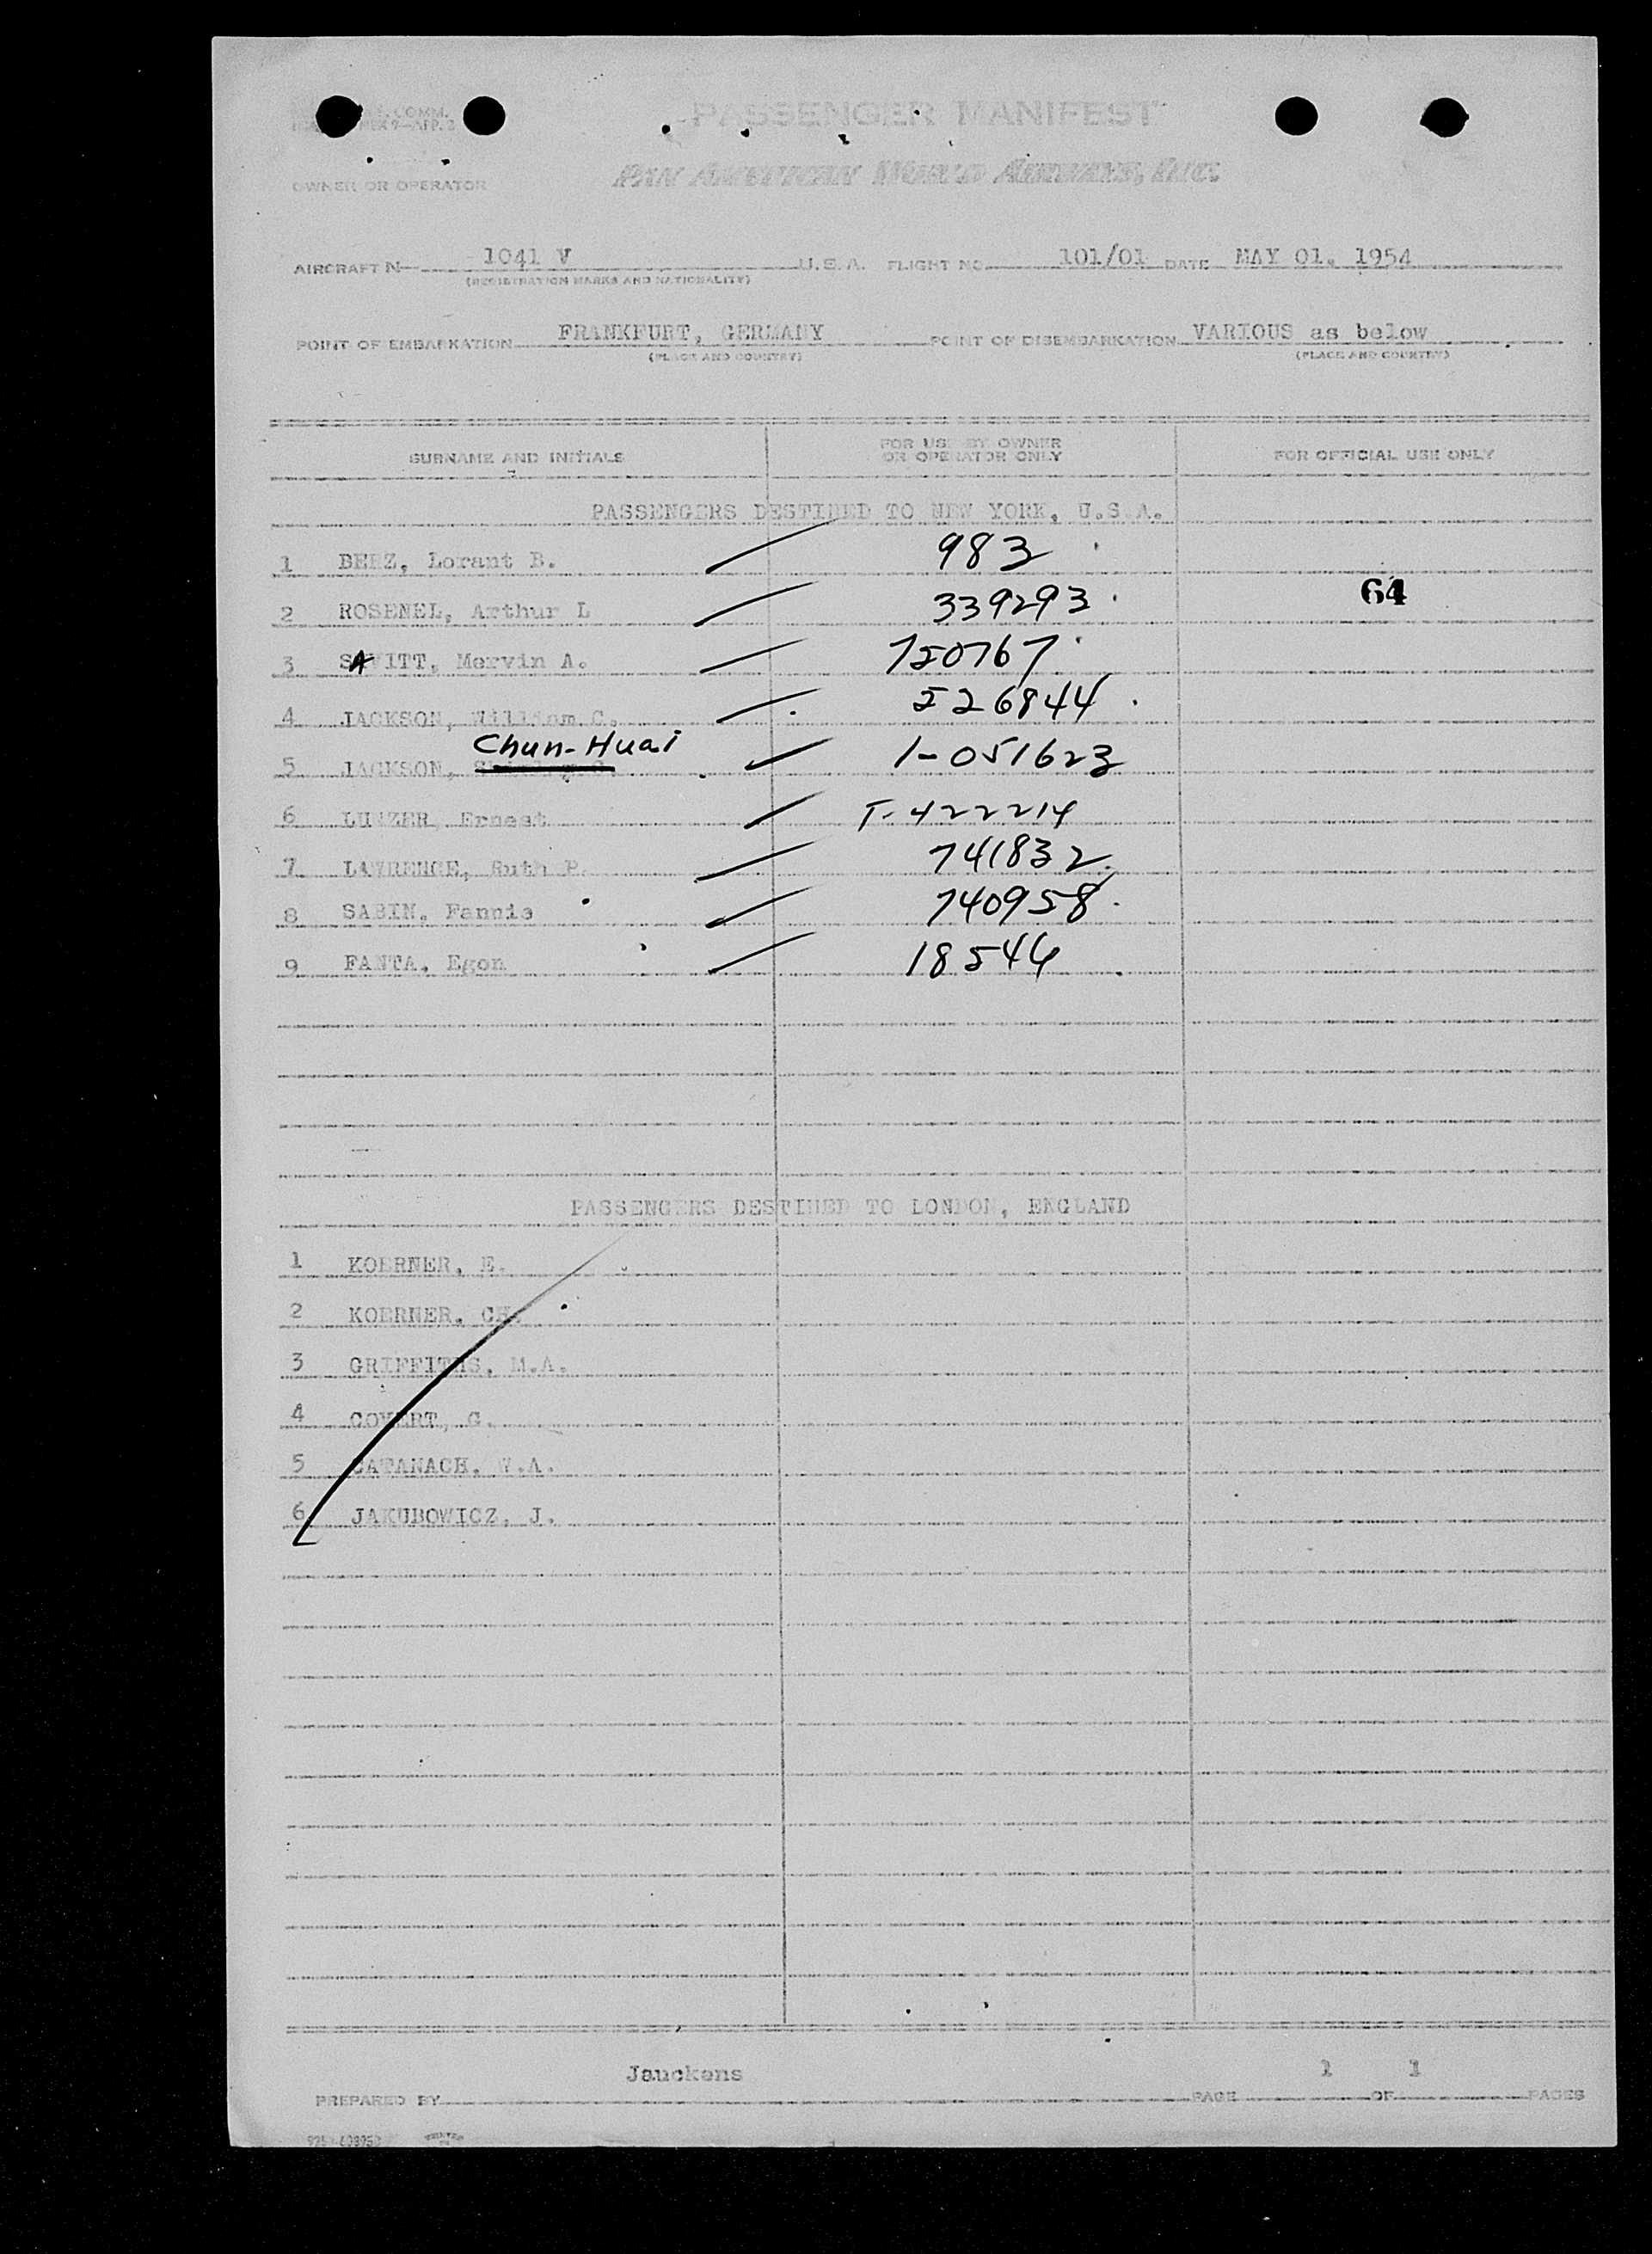 PASSENGER MANIFEST
OWNER OR OPERATOR PAN AMERICAN WORLD AIRWAYS, INC.
AIRCRAFT N 1041 V U.S.A. FLIGHT NO. 101/01 DATE MAY 01. 1954
(REGISTRATION MARKS AND NATIONALITY)
POINT OF EMBARKATION FRANKFURT, GERMANY POINT OF DISEMBARKATION VARIOUS as below
(PLACE AND COUNTRY) (PLACE AND COUNTRY)
SURNAME AND INITIALS FOR USE BY OWNER OR OPERATOR ONLY FOR OFFICIAL USE ONLY
PASSENGERS DESTINED TO NEW YORK, U.S.A.
1 BERZ, Lorant B. 983
2 ROSENEL, Arthur L 339293 64
3 SAVITT, Mervin A. 750767
4 JACKSON, William C. 526944
Chun-Huai
5 JACKSON, 1-051623
6 Ernest T-422214
7 LAWRENCE, Ruth P. 741832
8 SABIN, Fannie 740958
9 FANTA, Egon 18546
PASSENGERS DESTINED TO LONDON, ENGLAND
1 KOERNER, E.
2 KOERNER, CH.
3 GRIFFITHS, M.A.
4 COVERT, G.
5 CATANACH, W.A.
6 JAKUBOWICZ, J.
PREPARED BY Jauckens PAGE 1 OF 1 PAGES